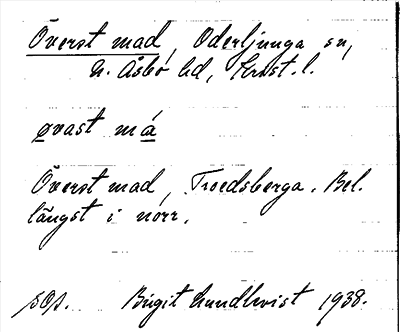 Överst mad, Oderljunga sn,
N. Åsbo hd, Krist. l.
øvast má
Överst mad, Troedsberga. Bel.
längst i norr.
sop. Birgit Lundkvist 1938.